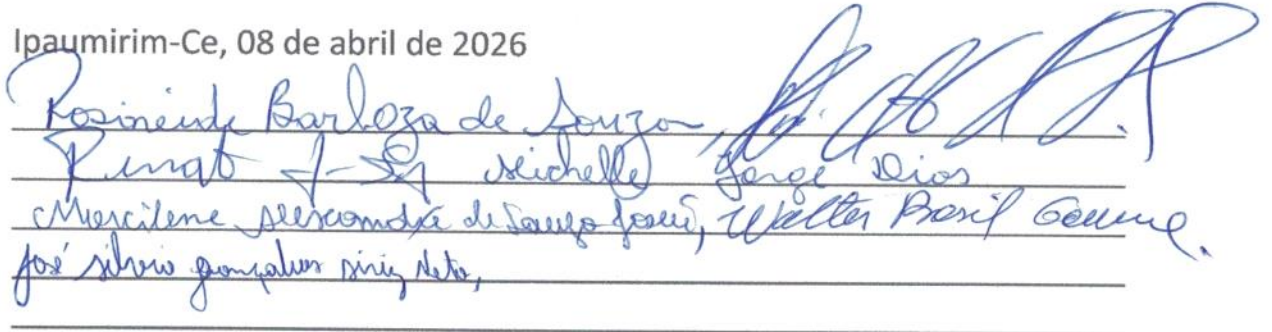 Ipaumirim-Ce, 08 de abril de 2026
Rosineide Barboza de Souza,
Renato Michelle Jorge Dias
Marcilene Alexandre de Souza Josué, Walter Brasil
José Silvio Gonçalves Diniz Neto,